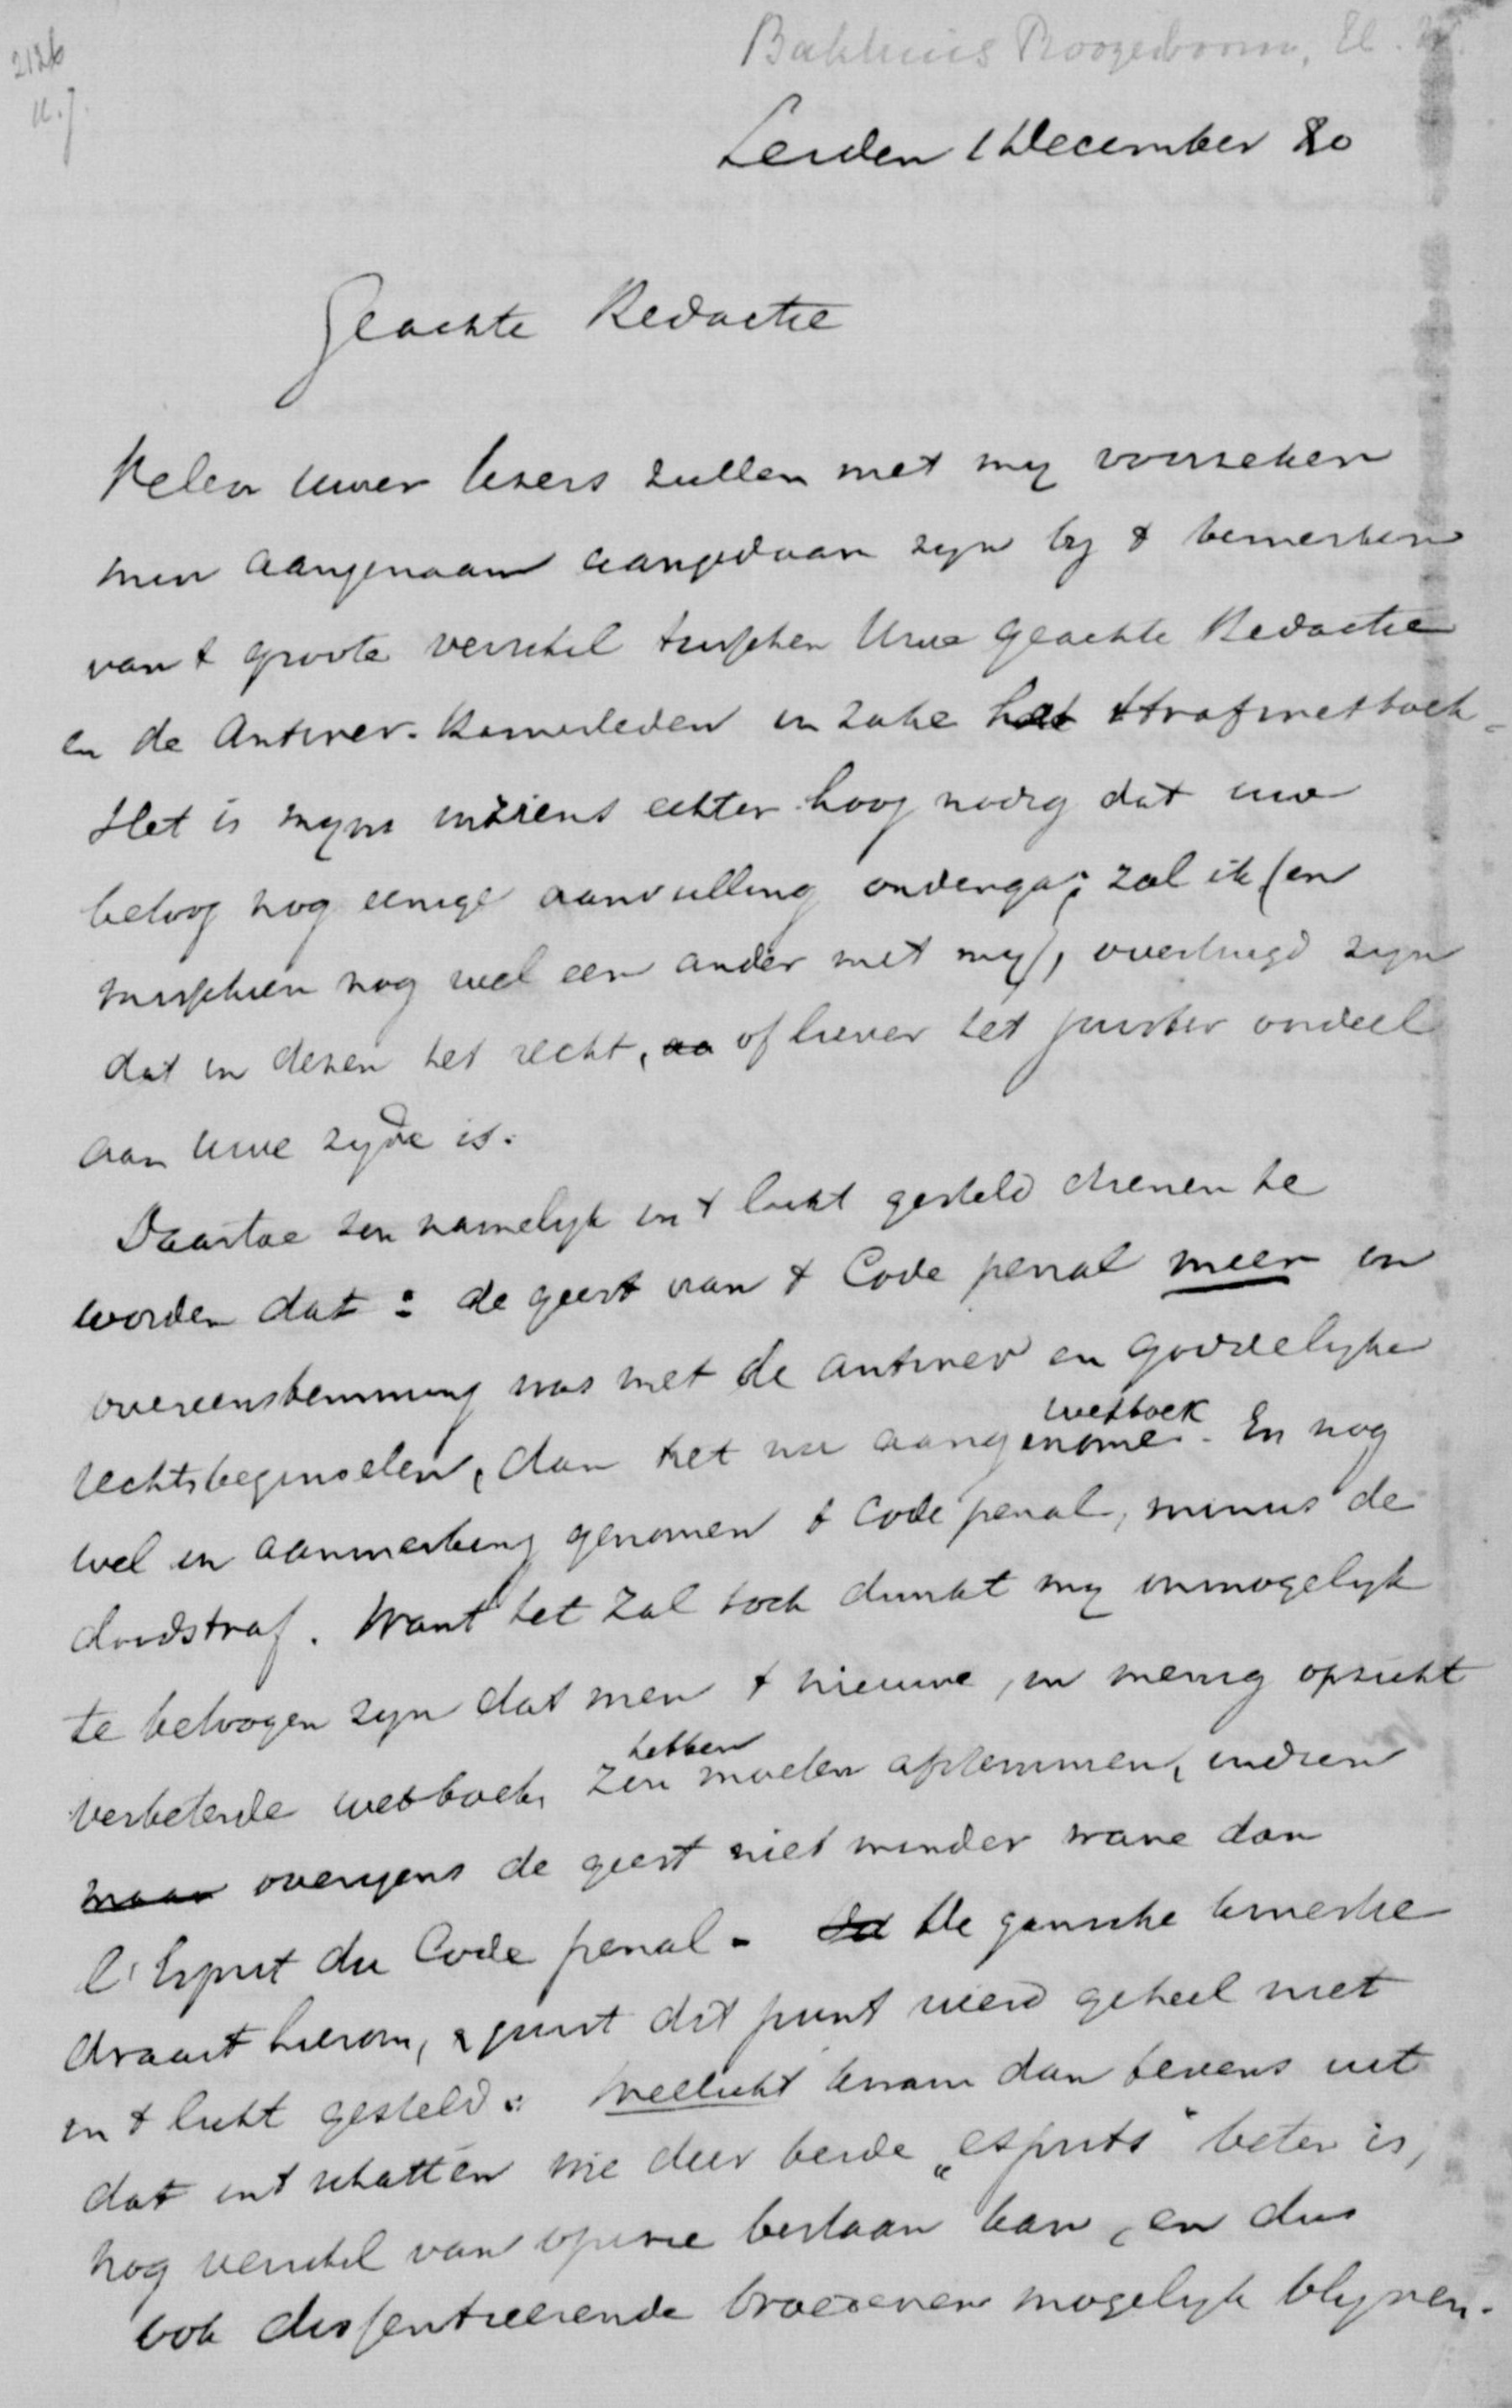 2126
Bakhuis Roozeboom,
Leiden 1 December 80
Geachte Redactie
Velen uwer lezers zullen met my voorzeker
min aangenaam aangedaan zyn by 't bemerken
van 't groote verschil tusschen Uwe geachte Redactie
en de Antirev. Kamerleden in zake het strafwetboek.
Het is myns inziens echter hoog nodig dat uw
betoog nog eenige aanvulling onderga; zal ik (en
misschien nog wel een ander met my), overtuigd zyn
dat in dezen het recht, of liever het juister oordeel
aan Uwe zyde is.
Daartoe zou namelyk in 't licht gesteld dienen te
worden dat: de geest van 't Code penal meer in
overeenstemming was met de antirev en Goddelyke
rechtsbeginselen, dan het nu aangenomen wetboek. En nog
wel in aanmerking genomen 't Code penal, minus de
doodstraf. Want het zal toch dunkt my onmogelyk
te betoogen zyn dat men 't nieuwe, in menig opzicht
verbeterde wetboek, zou hebben moeten afstemmen, indien
maar overigens de geest niet minder ware dan
l'Esprit du Code penal. De gansche kwestie
draait hierom, & juist dit punt werd geheel niet
in 't licht gesteld. Wellicht kwam dan tevens uit
dat in 't schatten wie deer beide „esprits" beter is,
nog verschil van opinie bestaan kan, en dus
ook dissentieerende broederen mogelyk blyven.